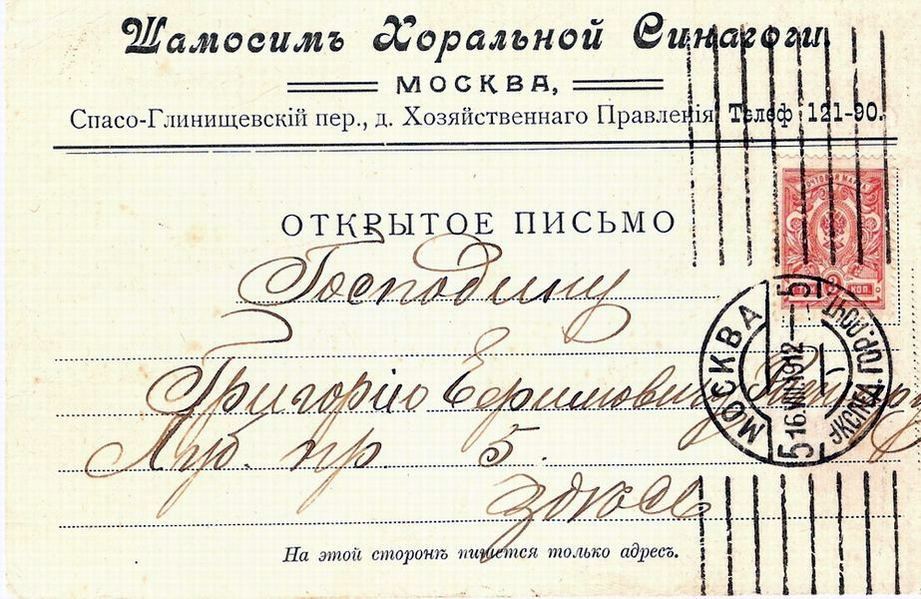 Шамосимъ Хоральной Синагоги.
МОСКВА,
Спасо-Глинищевскій пер., д. Хозяйственнаго Правленія Телеф 121-90.
ОТКРЫТОЕ ПИСЬМО
ПОЧТОВАЯ МАРКА
КОП.
Господину
Григорію Ефимовичу
Луб. пр. 5.
здѣсь
МОСКВА
5 16.VIII.1912 5
ЭКСПЕД. ГОР. ПОЧТ.
На этой сторонѣ пишется только адресъ.